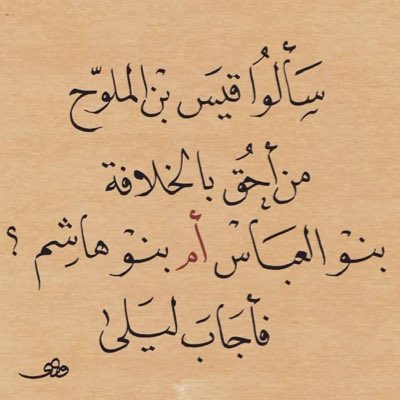 سَألوُا قيَس بْن الملوّح
من أحُق بالخلافة
بنوْ العبَاسْ أم بنوْ هاشِم ؟
فأجَابَ ليَلىٰ